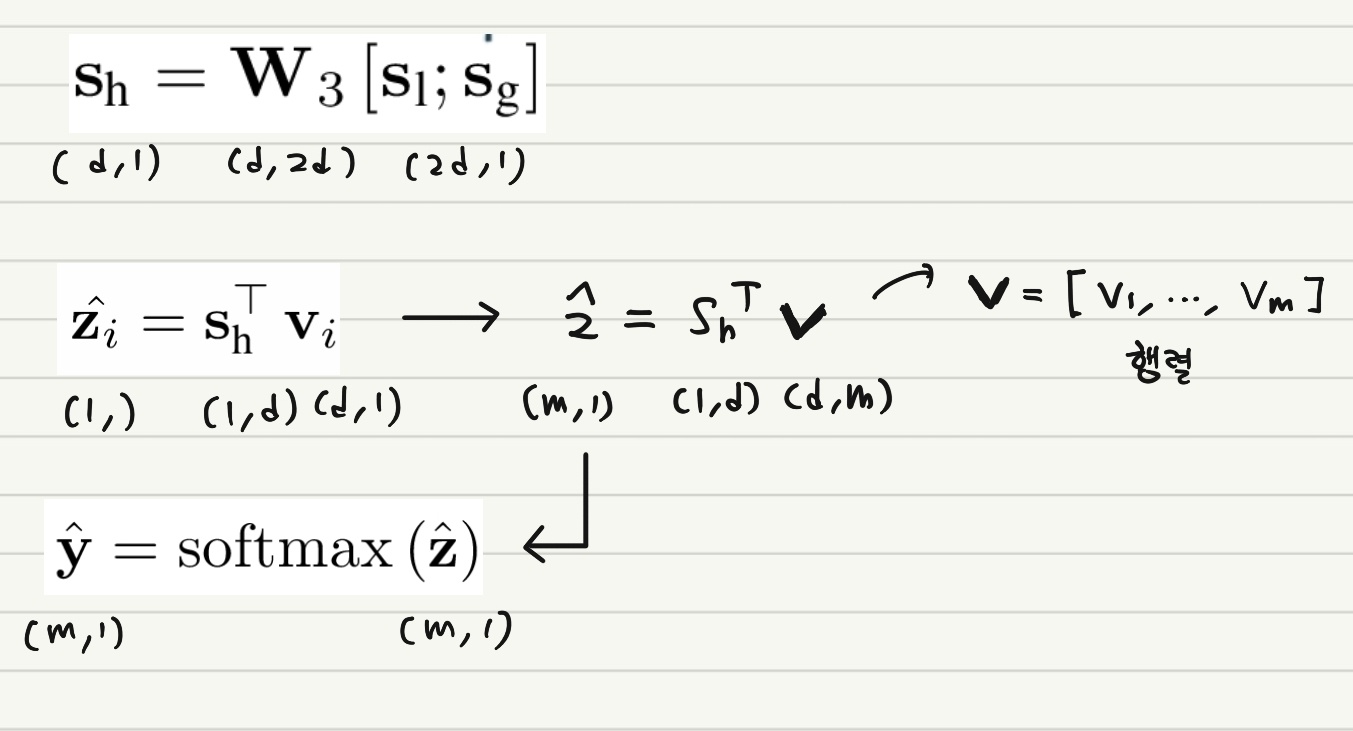 s_h = W_3 [s_l; s_g]
(d,1) (d,2d) (2d,1)
ẑ_i = s_h^⊤ v_i → ẑ = S_h^T V → V = [v_1, ..., v_m]
행렬
(1,) (1,d) (d,1) (m,1) (1,d) (d,m)
ŷ = softmax (ẑ) ←
(m,1) (m,1)